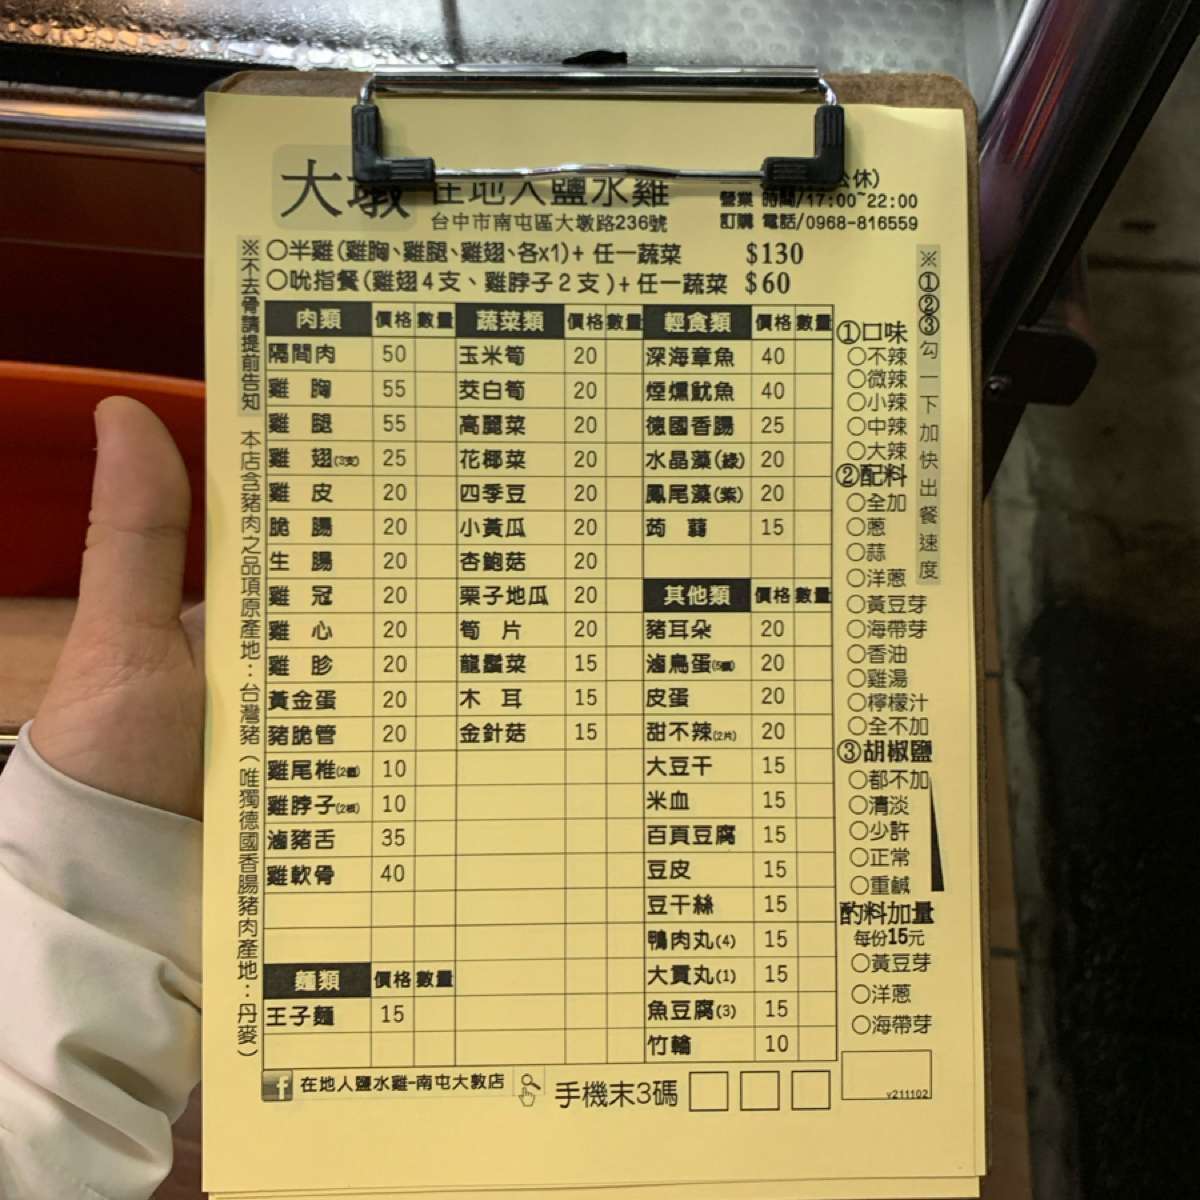 大墩 在地人鹽水雞
公休)
營業 時間/17:00~22:00
台中市南屯區大墩路236號
訂購 電話/0968-816559
○半雞(雞胸、雞腿、雞翅、各x1)+ 任一蔬菜 $130
○吮指餐(雞翅4支、雞脖子2支)+ 任一蔬菜 $60
※不去骨請提前告知 本店含豬肉之品項原產地:台灣豬(唯獨德國香腸豬肉產地:丹麥)
肉類 價格 數量
隔間肉 50
雞 胸 55
雞 腿 55
雞 翅(3支) 25
雞 皮 20
脆 腸 20
生 腸 20
雞 冠 20
雞 心 20
雞 胗 20
黃金蛋 20
豬脆管 20
雞尾椎(2個) 10
雞脖子(2根) 10
滷豬舌 35
雞軟骨 40
麵類 價格 數量
王子麵 15
蔬菜類 價格 數量
玉米筍 20
茭白筍 20
高麗菜 20
花椰菜 20
四季豆 20
小黃瓜 20
杏鮑菇 20
栗子地瓜 20
筍 片 20
龍鬚菜 15
木 耳 15
金針菇 15
輕食類 價格 數量
深海章魚 40
煙燻魷魚 40
德國香腸 25
水晶藻(綠) 20
鳳尾藻(紫) 20
蒟 蒻 15
其他類 價格 數量
豬耳朵 20
滷鳥蛋(5個) 20
皮蛋 20
甜不辣(2片) 20
大豆干 15
米血 15
百頁豆腐 15
豆皮 15
豆干絲 15
鴨肉丸(4) 15
大貢丸(1) 15
魚豆腐(3) 15
竹輪 10
①口味
○不辣
○微辣
○小辣
○中辣
○大辣
②配料
○全加
○蔥
○蒜
○洋蔥
○黃豆芽
○海帶芽
○香油
○雞湯
○檸檬汁
○全不加
③胡椒鹽
○都不加
○清淡
○少許
○正常
○重鹹
酌料加量
每份15元
○黃豆芽
○洋蔥
○海帶芽
※①②③勾一下加快出餐速度
在地人鹽水雞-南屯大敦店
手機末3碼
v211102